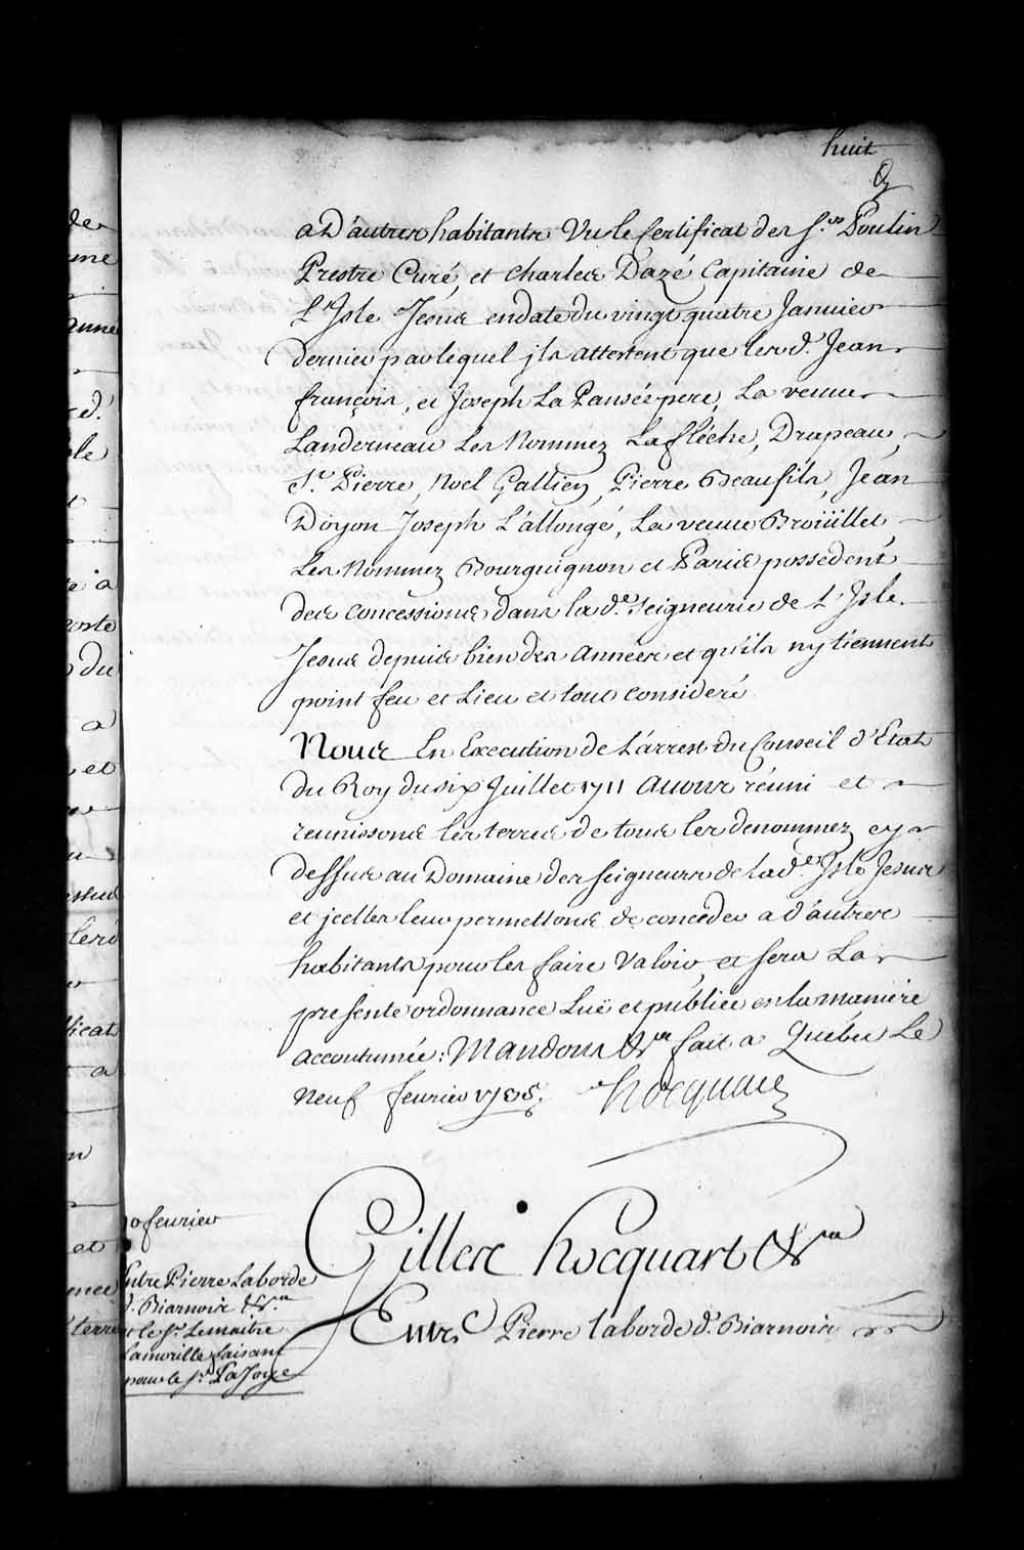 huit
a D'autres habitants Vu le Certificat des S.rs Poulin
Prestre Curé, et Charles Dazé Capitaine de
L'Isle Jesus en date du vingt quatre Janvier
dernier par lequel jls attestent que les d. Jean
françois, et Joseph La Pensée pere, La veuve
Landerneau Les Nommez Lafléche, Drapeau,
S.t Pierre, Noel Gallien, Pierre Beaufils, Jean
Doyon Joseph L'allongé, La veuve Broüillet
Les Nommez Bourguignon et Paris possedent
des concessions dans la d.e seigneurie de L'Isle
Jesus depuis bien des années et qu'ils ny tiennent
point feu et Lieu et tout consideré
Nous En Execution de L'arrest du Conseil d'Etat
du Roy du six Juillet 1711 avons réuni et
reunissons les terres de tous les denommez cy
dessus au Domaine des seigneurs de la d.e Isle Jesus
et jcelles leur permettons de conceder a d'autres
habitants pour les faire valoir, et sera La
presente ordonnance Luë et publiée en la maniere
accoutumée: Mandons &.a fait a Quebec Le
neuf fevrier 1735. hocquart
Gilles hocquart &.a
Entre Pierre Laborde d. Biarnois
10 fevrier
Entre Pierre Laborde
d. Biarnois &.a
et le S.r Lemaitre
Lamorille faisant
pour le S.r La Joye